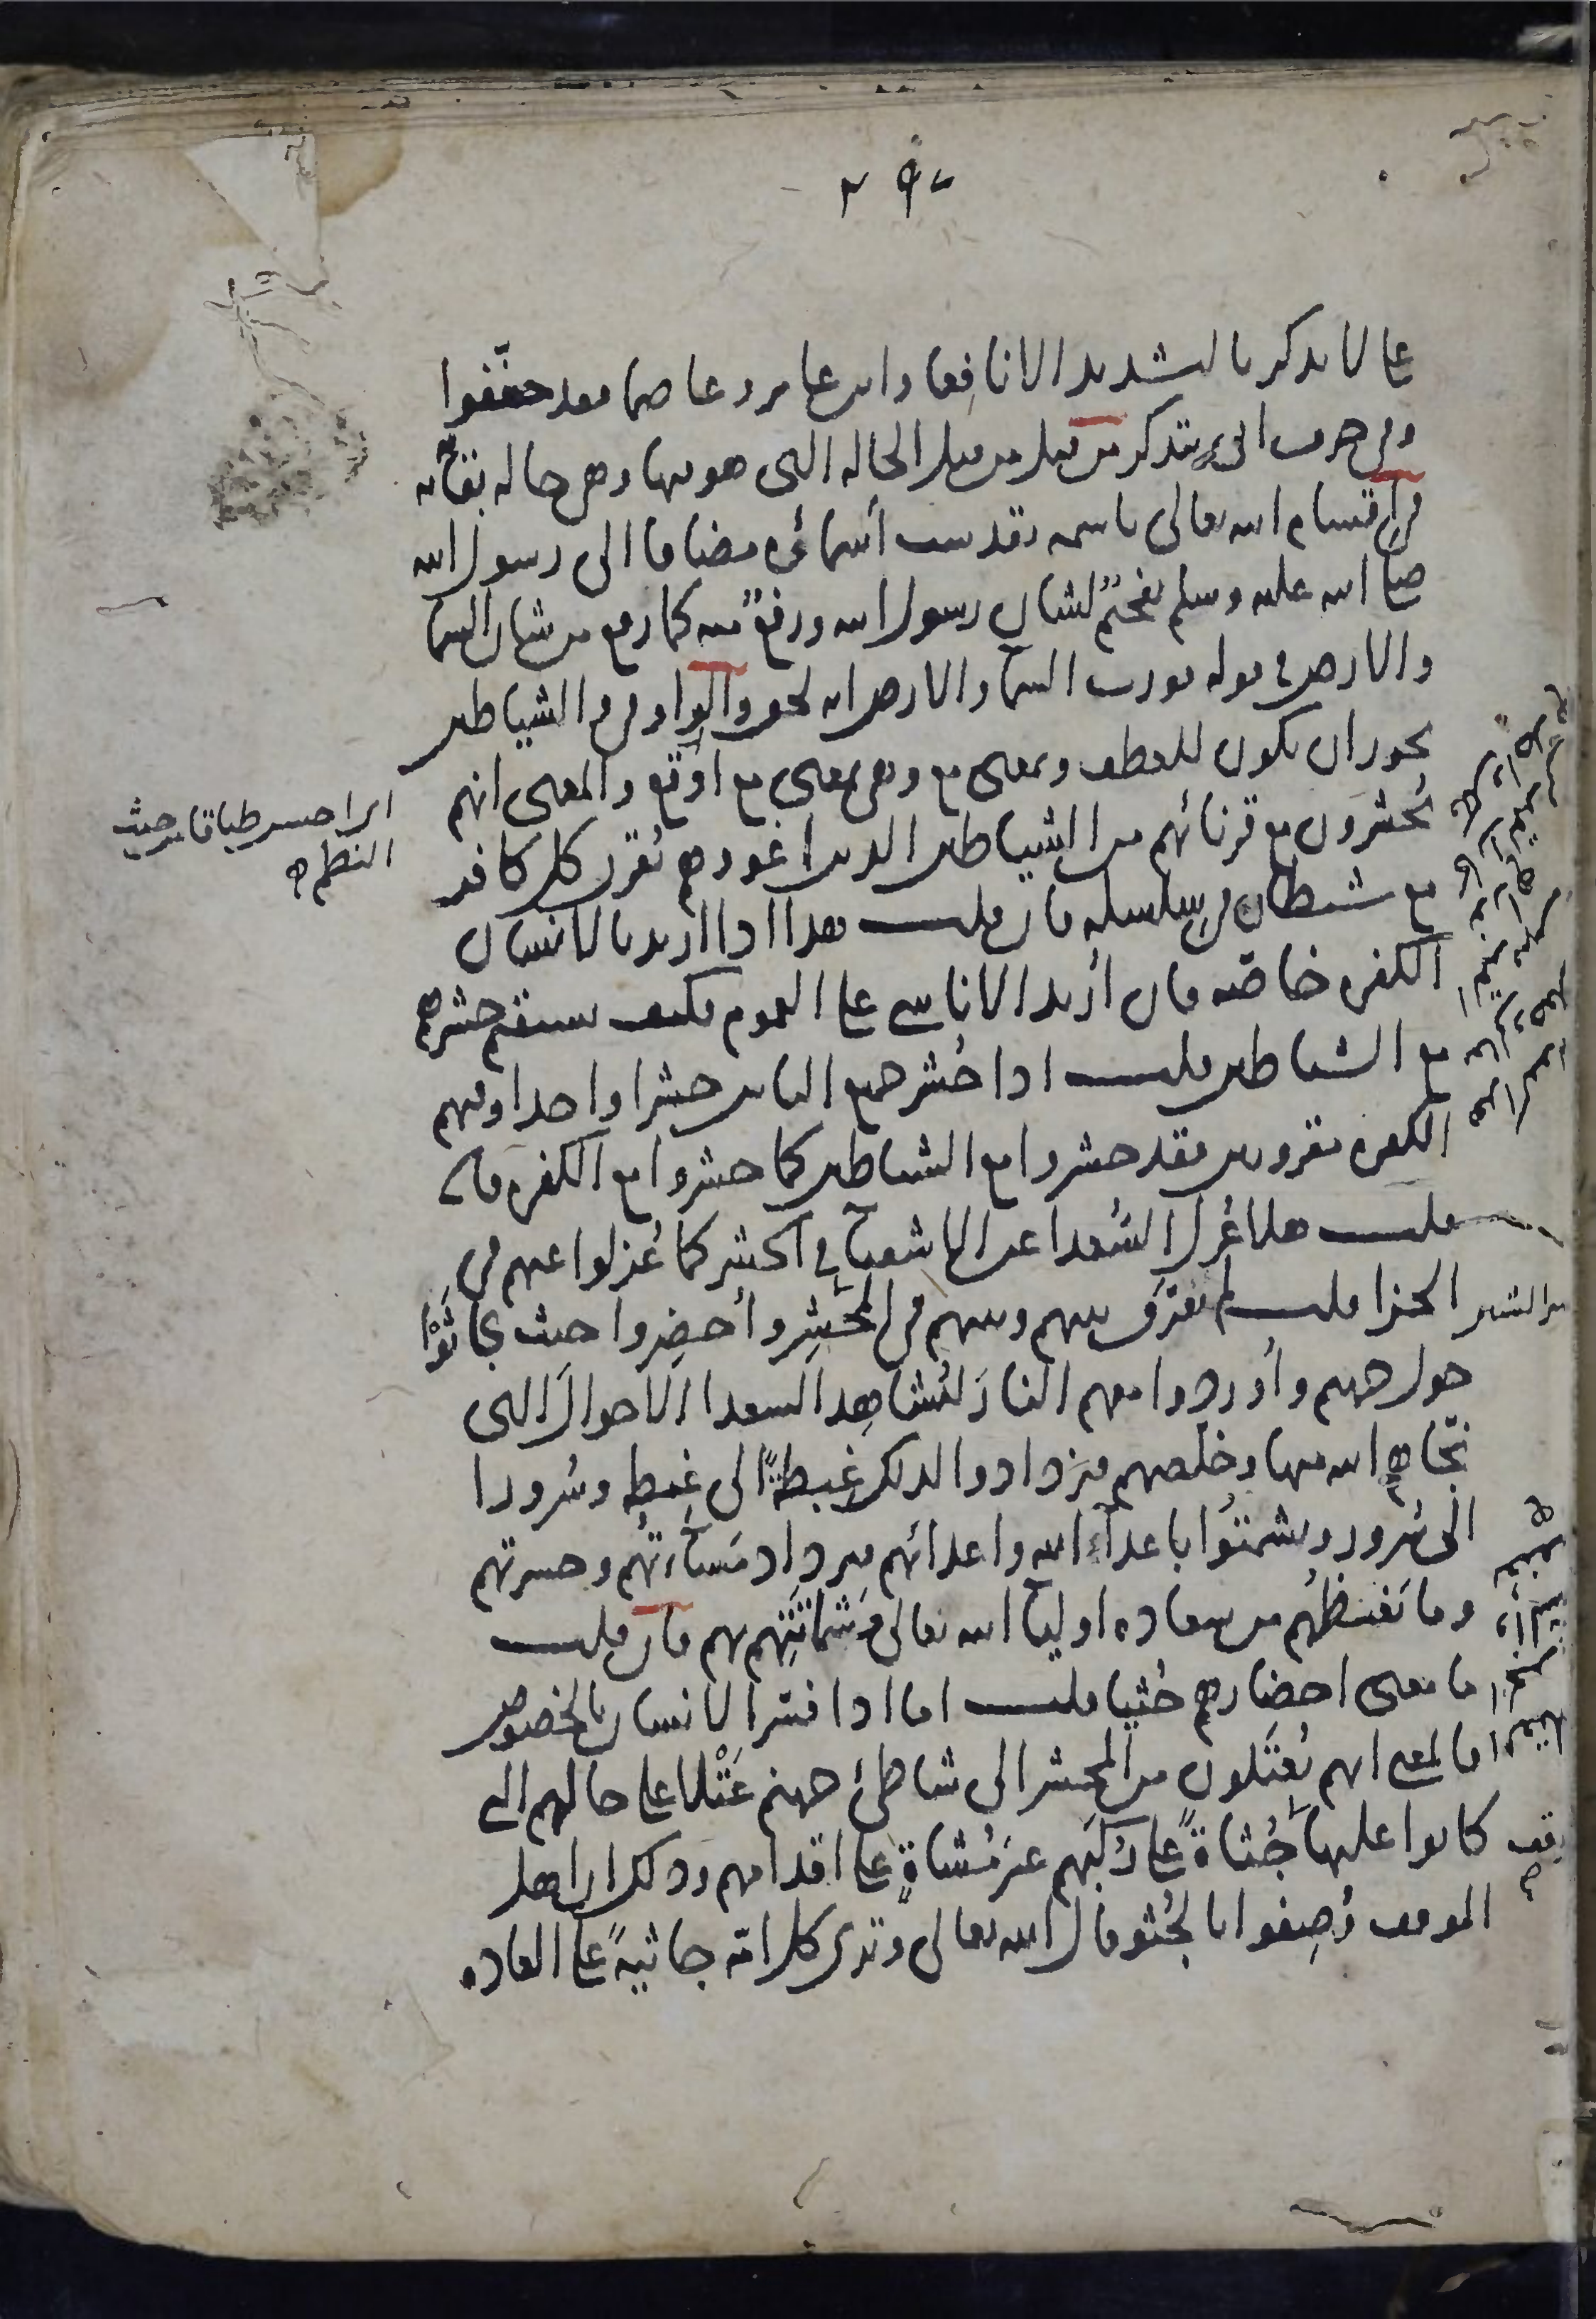 على لا يذكر بالتشديد الا نافعا وابن عامر وعاصما فقد خففوا
وفي حرف ابي يتذكر من قبل من قبل الحاله التي هو فيها وهي حاله بقائه
في اقسام الله تعالى باسمه تقدست أسمائه مضافا الى رسول الله
صلى الله عليه وسلم تفخيم لشان رسول الله ورفع منه كما رفع من شان السما
والارض في قوله فورب السما والارض انه لحق والواو في والشياطين
يجوز ان يكون للعطف وبمعنى مع وهي بمعنى مع اوقع والمعنى انهم
يُحشرون مع قرنائهم من الشياطين الذين اغووهم يُقرن كل كافر
مع شيطان في سلسله فان قلت هذا اذا اريد بالانسان
الكفره خاصّه فان أُريد الاناسي على العموم فكيف يستقيم حشرهم
مع الشياطين قلت اذا حُشر جميع الناس حشرا واحدا وفيهم
الكفره مقرونين فقد حشروا مع الشياطين كما حشروا مع الكفره فان
قلت هلا عُزل السُّعدا عن الاشقيا في الحشر كما عُزلوا عنهم في
الجزا قلت لم يفرّق بينهم وبينهم في المحشر وأُحضِروا حيث تجاثوا
حول جهنم وأُوردوا معهم النارَ ليُشاهد السعدا الاحوال التي
نجّاهم الله منها وخلّصهم فيزدادوا لذلك غِبطةً الى غبطه وسُرورا
الى سُرور ويشمتُوا باعداء الله واعدائهم فيزداد مَساءتُهم وحسرتهم
وما يَغيظُهم من سعاده اوليا الله تعالى وشماتتِهم بهم فان قلت
ما معنى احضارهم جُثيا قلت اما اذا فسّر الانسان بالخصوص
فالمعنى انهم يُعتَلون من المحشر الى شاطئ جهنم عَتْلا على حالهم التي
كانوا عليها جُثاةً على رُكَبهم غير مُشاةٍ على اقدامهم وذلك ان اهل
الموقف وُصِفوا بالجُثو قال الله تعالى وترى كل امّه جاثيةً على العاده
حيث
النظم